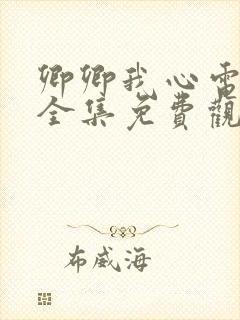 卿卿我心電
全集免費觀
布威海